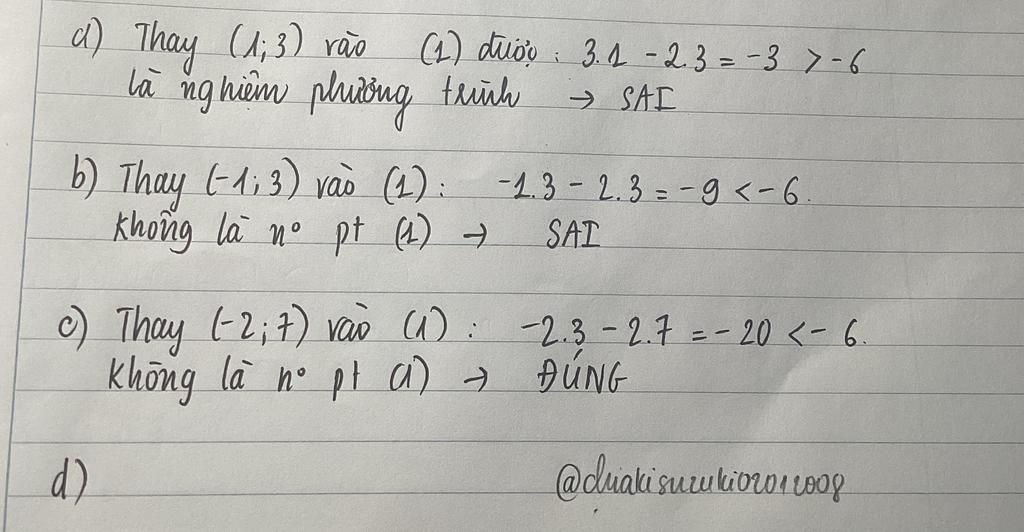 a) Thay (1;3) vào (1) được: 3.1 - 2.3 = -3 > -6
là nghiệm phương trình → SAI
b) Thay (-1;3) vào (1): -1.3 - 2.3 = -9 < -6.
không là nº pt (1) → SAI
c) Thay (-2;7) vào (1): -2.3 - 2.7 = -20 < -6.
không là nº pt (1) → ĐÚNG
d) @chiakisuzuki02012008